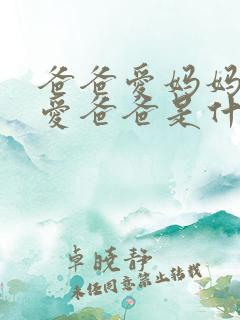 爸爸爱妈妈
爱爸爸是什
卓晓静
未经同意禁止转载